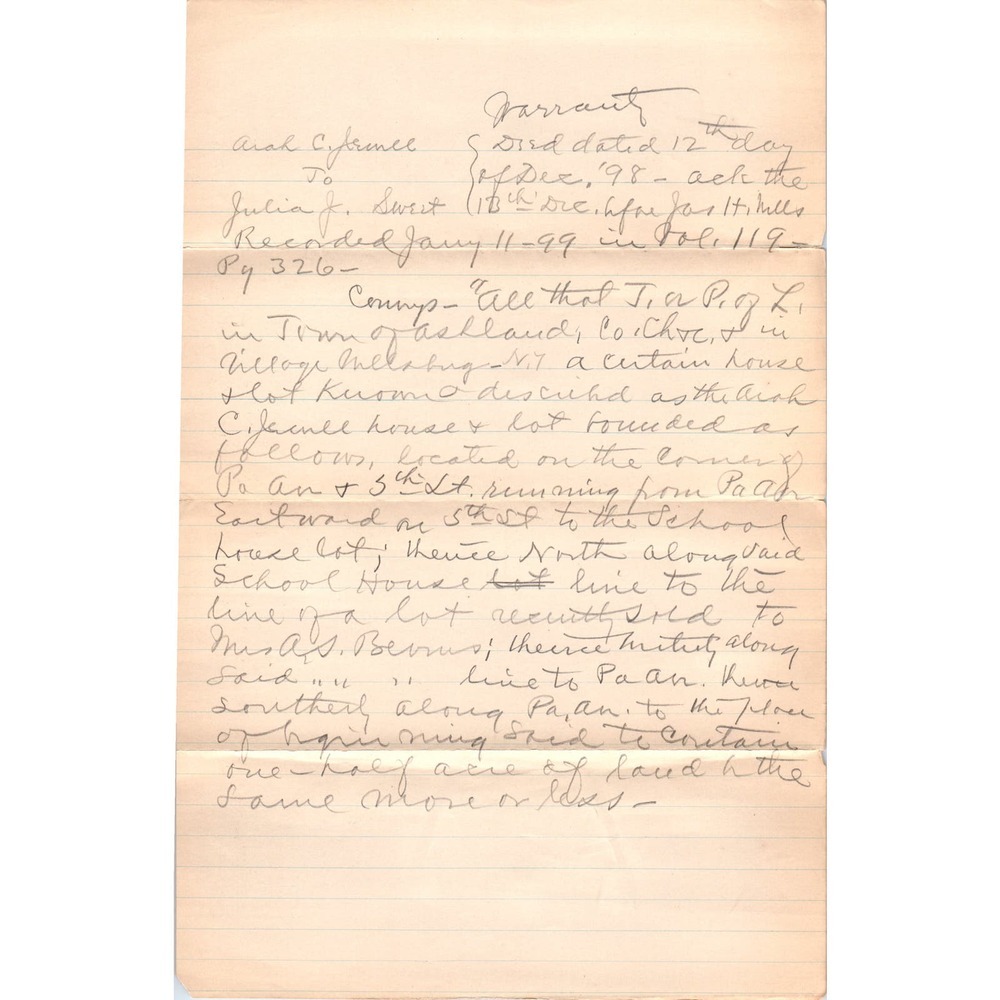 Warranty
Arah C. Jewell { Deed dated 12th day
To { of Dec. '98 - ack the
Julia J. Sweet { 13th Dec. bfore Jas H. Mills
Recorded Jany 11-99 in Vol. 119-
Pg 326-
Conveys - "All that T. or P. of L.
in Town of Ashland, Co. Che, & in
Village Wellsburg - N.Y. a certain house
& lot known & described as the Arah
C. Jewell house & lot bounded as
follows, located on the corner of
Pa Av & 5th St. running from Pa Av
Eastward on 5th St to the School
house lot; thence North along said
School House lot line to the
line of a lot recently sold to
Mrs A. S. Bevins; thence westerly along
said " " " line to Pa Av. thence
southerly along Pa. Av. to the place
of beginning said to contain
one-half acre of land b the
same more or less -